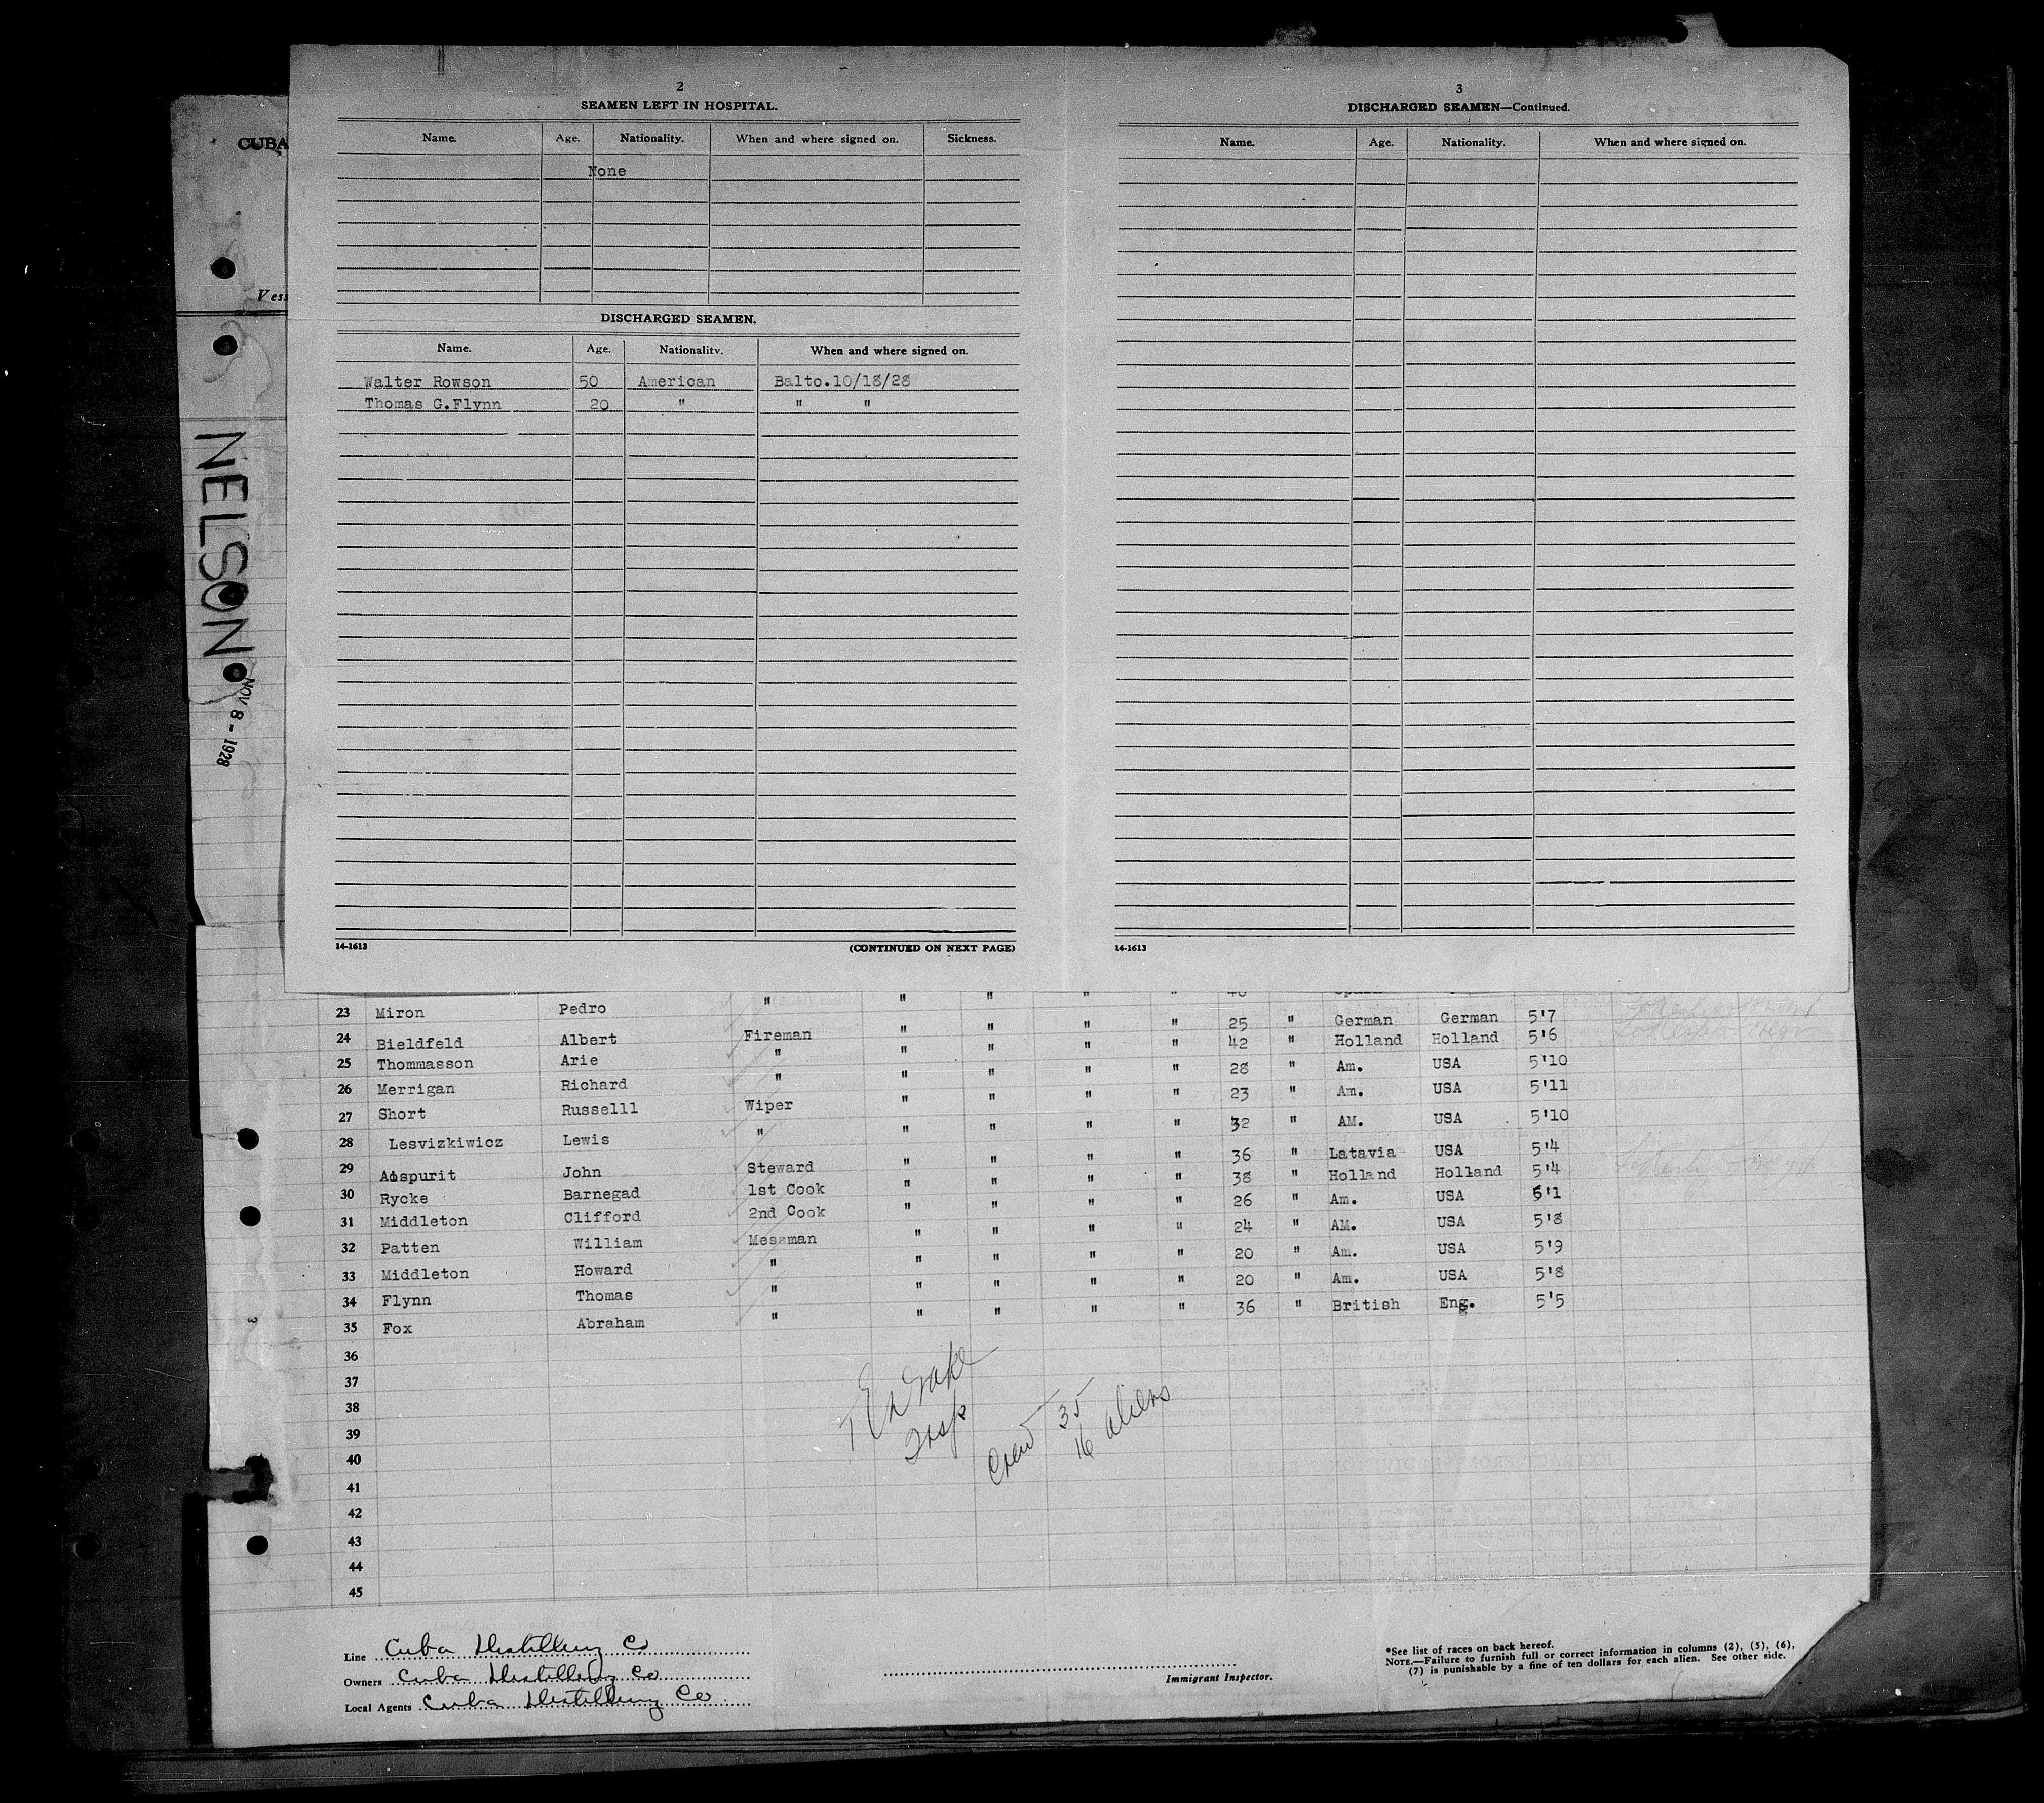 CUBA
Vess
NELSON
NOV 8 - 1928
2
SEAMEN LEFT IN HOSPITAL.
Name. Age. Nationality. When and where signed on. Sickness.
None
DISCHARGED SEAMEN.
Name. Age. Nationality. When and where signed on.
Walter Rowson 50 American Balto.10/18/28
Thomas G.Flynn 20 " " "
14-1613 (CONTINUED ON NEXT PAGE)
3
DISCHARGED SEAMEN—Continued.
Name. Age. Nationality. When and where signed on.
14-1613
23 Miron Pedro " " " " "
24 Bieldfeld Albert Fireman " " " " 25 " German German 5'7
25 Thommasson Arie " " " " " 42 " Holland Holland 5'6
26 Merrigan Richard " " " " " 28 " Am. USA 5'10
27 Short Russelll Wiper " " " " 23 " Am. USA 5'11
28 Lesvizkiwicz Lewis " " " " " 32 " AM. USA 5'10
29 Aospurit John Steward " " " " 36 " Latavia USA 5'4
30 Rycke Barnegad 1st Cook " " " " 38 " Holland Holland 5'4
31 Middleton Clifford 2nd Cook " " " " 26 " Am. USA 6'1
32 Patten William Messman " " " " 24 " AM. USA 5'8
33 Middleton Howard " " " " " 20 " Am. USA 5'9
34 Flynn Thomas " " " " " 20 " Am. USA 5'8
35 Fox Abraham " " " " " 36 " British Eng. 5'5
36
37
38
39
40
41
42
43
44
45
Drake
Insp
Crew 35
16 aliens
3
Line Cuba Distilling Co
Owners Cuba Distilling Co
Local Agents Cuba Distilling Co
Immigrant Inspector.
*See list of races on back hereof.
NOTE.—Failure to furnish full or correct information in columns (2), (5), (6),
(7) is punishable by a fine of ten dollars for each alien. See other side.